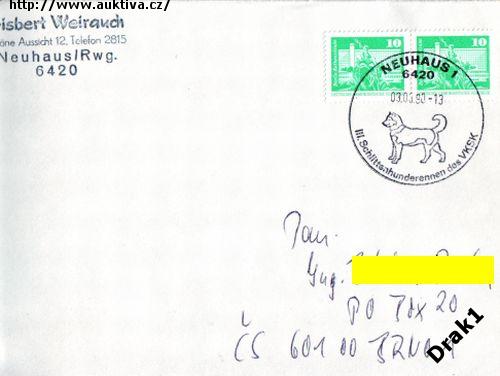 http://www.auktiva.cz/
isbert Weirauch
öne Aussicht 12, Telefon 2815
Neuhaus/Rwg.
6420
10 10
NEUHAUS 1
6420
03.03.90-13
III. Schlittenhunderennen des VKSK
Pan
Ing.
PO Box 20
ČS 601 00 BRNO
Drak1